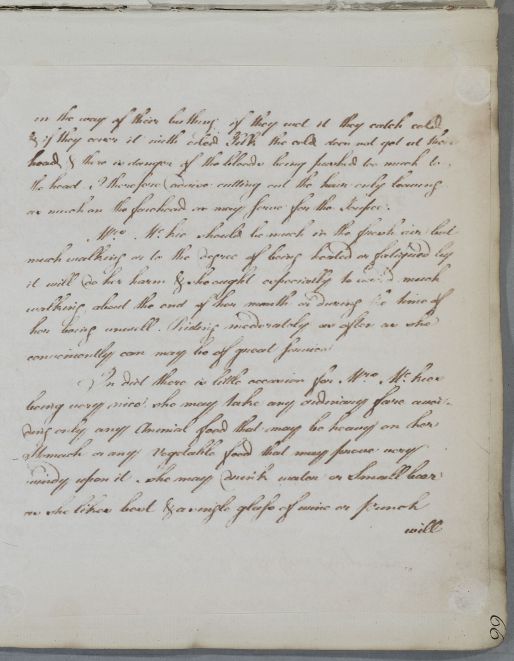 in the way of their bathing. if they wet it they catch cold
& if they cover it with oiled Silk the cold does not get at their
head, & there is danger of the blood being pushed too much to
the head I therefore advise cutting out the hair only leaving
as much on the forehead as may serve for the Toupee.
Mrs. McKie should be much in the fresh air but
much walking or to the degree of being heated or fatigued by
it will do her harm & she ought especially to avoid much
walking about the end of her month or during the time of
her being unwell. Riding moderately as often as she
conveniently can may be of great service
In diet there is little occasion for Mrs. McKies
being very nice. she may take any ordinary fare avoi-
ding only any Animal food that may be heavy on her
Stomach or any Vegetable food that may prove very
windy upon it. she may drink water or Small beer
as she likes best & a single glass of wine or punch
will
66